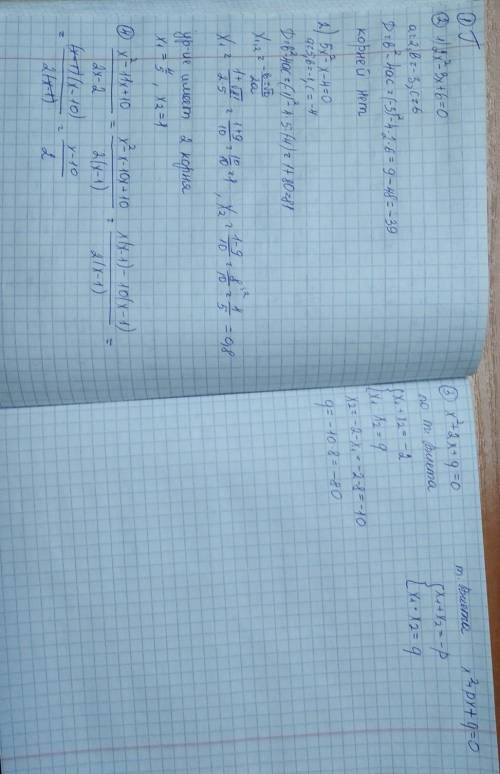 ① Т
② 1) 2x²-3x+6=0
a=2, b=-3, c=6
D=b²-4ac=(-3)²-4·2·6=9-48=-39
корней нет
2) 5x²-x-4=0
a=5, b=-1, c=-4
D=b²-4ac=(-1)²-4·5·(-4)=1+80=81
x₁,₂=(-b±√D)/2a
x₁=(1+√81)/2·5=(1+9)/10=10/10=1, x₂=(1-9)/10=8/10=4/5=0,8
ур-ие имеет 2 корня
x₁=4/5, x₂=1
④ (x²-11x+10)/(2x-2)=(x²-x-10x+10)/2(x-1)=(x(x-1)-10(x-1))/2(x-1)=
=(x-1)(x-10)/2(x-1)=(x-10)/2
③ x²+2x+q=0
по т. Виета
{x₁+x₂=-2
{x₁·x₂=q
x₂=-2-x₁=-2-8=-10
q=-10·8=-80
т. Виета x²+px+q=0
{x₁+x₂=-p
{x₁·x₂=q